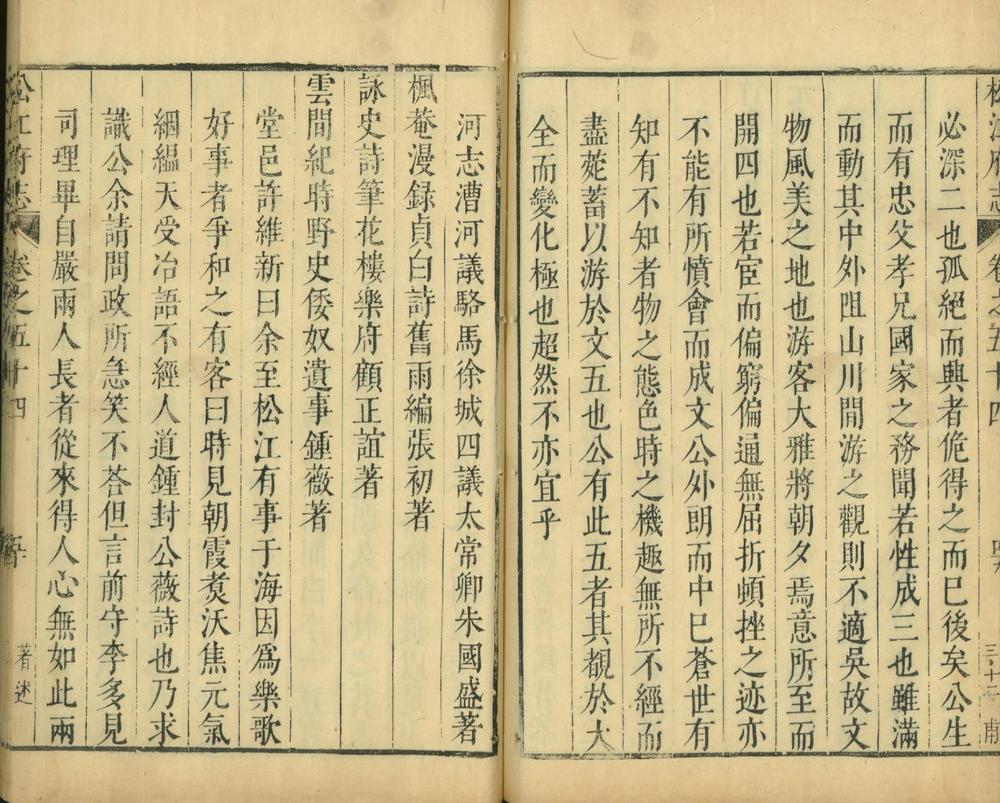 松江府志 卷之五十四
必深二也孤絕而興者佹得之而已後矣公生
而有忠父孝兄國家之務聞若性成三也雖滿
而動其中外阻山川閒游之觀則不適吳故文
物風美之地也游客大雅將朝夕焉意所至而
開四也若宦而偏窮偏通無屈折頓挫之迹亦
不能有所憤會而成文公外朗而中巳蒼世有
知有不知者物之態色時之機趣無所不經而
盡茈蓄以游於文五也公有此五者其覩於大
全而變化極也超然不亦宜乎
河志漕河議駱馬徐城四議太常卿朱國盛著
楓菴漫録貞白詩舊雨編張初著
詠史詩筆花樓樂府顧正誼著
雲間紀時野史倭奴遺事鍾薇著
堂邑許維新曰余至松江有事于海因爲樂歌
好事者爭和之有客曰時見朝霞煑沃焦元氣
絪縕天受冶語不經人道鍾封公薇詩也乃求
識公余請問政所急笑不荅但言前守李多見
司理畢自嚴兩人長者從來得人心無如此兩
松江府志 卷之五十四 著述